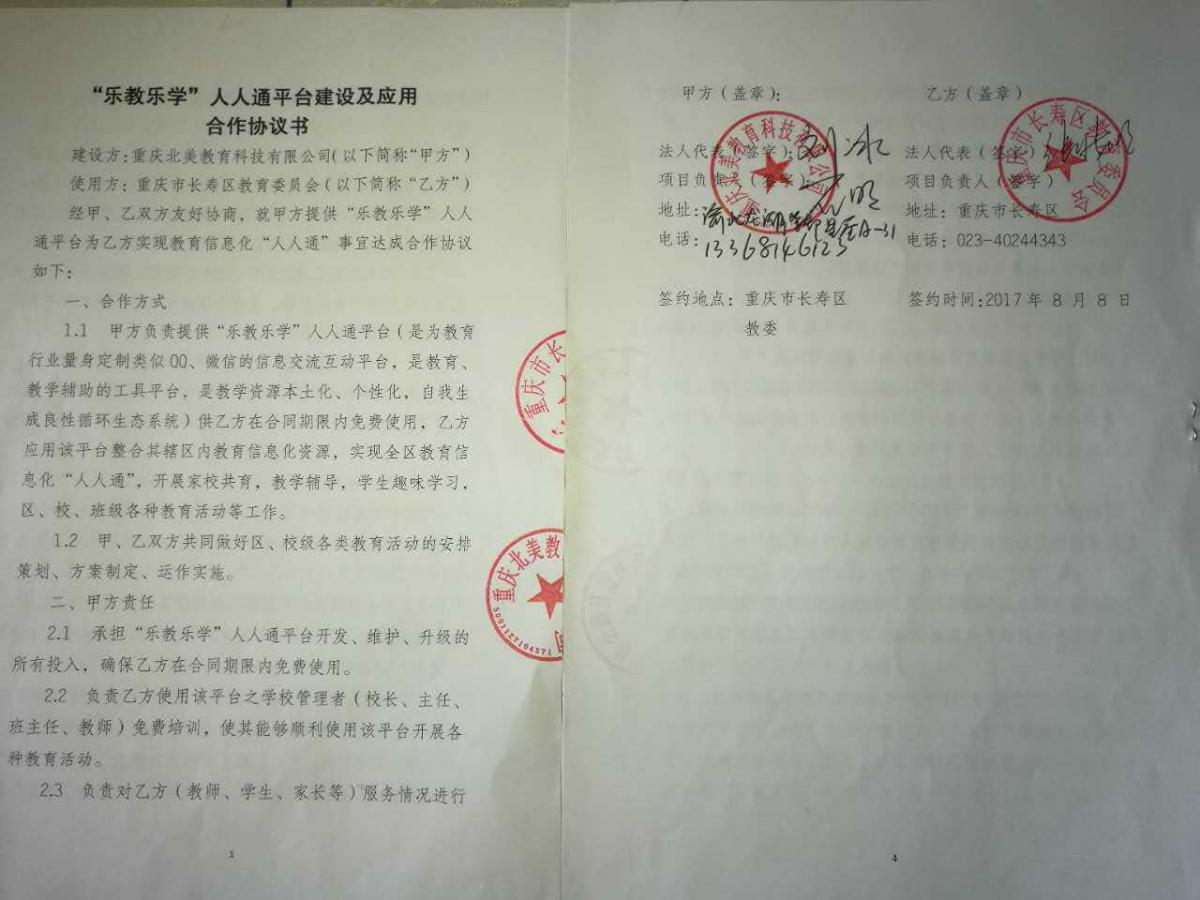 “乐教乐学”人人通平台建设及应用
合作协议书
建设方:重庆北美教育科技有限公司(以下简称“甲方”)
使用方:重庆市长寿区教育委员会(以下简称“乙方”)
经甲、乙双方友好协商，就甲方提供“乐教乐学”人人
通平台为乙方实现教育信息化“人人通”事宜达成合作协议
如下:
一、合作方式
1.1 甲方负责提供“乐教乐学”人人通平台(是为教育
行业量身定制类似QQ、微信的信息交流互动平台，是教育、
教学辅助的工具平台，是教学资源本土化、个性化，自我生
成良性循环生态系统)供乙方在合同期限内免费使用，乙方
应用该平台整合其辖区内教育信息化资源，实现全区教育信
息化“人人通”，开展家校共育，教学辅导，学生趣味学习，
区、校、班级各种教育活动等工作。
1.2 甲、乙双方共同做好区、校级各类教育活动的安排
策划、方案制定、运作实施。
二、甲方责任
2.1 承担“乐教乐学”人人通平台开发、维护、升级的
所有投入，确保乙方在合同期限内免费使用。
2.2 负责乙方使用该平台之学校管理者(校长、主任、
班主任、教师)免费培训，使其能够顺利使用该平台开展各
种教育活动。
2.3 负责对乙方(教师、学生、家长等)服务情况进行
1
重庆市长
重庆北美教
5001127104571
甲方(盖章):
乙方(盖章)
法人代表(签字):
法人代表(签字)
项目负责人(签字)
项目负责人(签字)
地址:渝北龙湖
A-31
地址:重庆市长寿区
电话:13368146123
电话:023-40244343
重庆北美教育科技有限公司
重庆市长寿区教育委员会
签约地点:重庆市长寿区
教委
签约时间:2017年8月8日
4